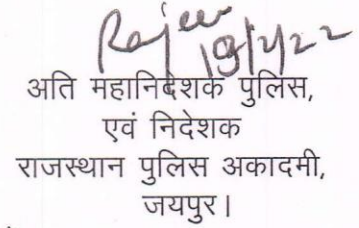 Rajeev
19/2/22
अति महानिदेशक पुलिस,
एवं निदेशक
राजस्थान पुलिस अकादमी,
जयपुर।